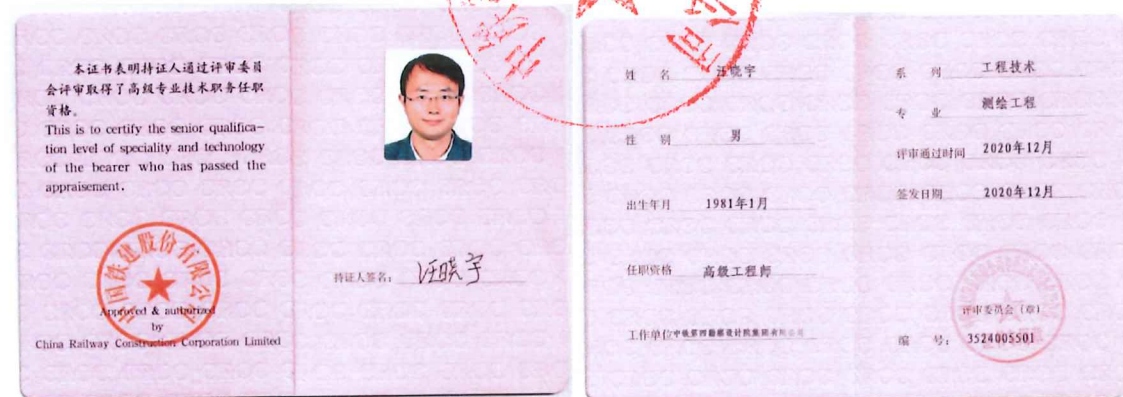 本证书表明持证人通过评审委员
会评审取得了高级专业技术职务任职
资格。
This is to certify the senior qualifica-
tion level of speciality and technology
of the bearer who has passed the
appraisement.
中国铁建股份有限公司
Approved & authorized
by
China Railway Construction Corporation Limited
持证人签名: 汪晓宇
姓 名 汪晓宇
性 别 男
出生年月 1981年1月
任职资格 高级工程师
工作单位 中铁第四勘察设计院集团有限公司
系 列 工程技术
专 业 测绘工程
评审通过时间 2020年12月
签发日期 2020年12月
评审委员会(章)
编 号: 3524005501